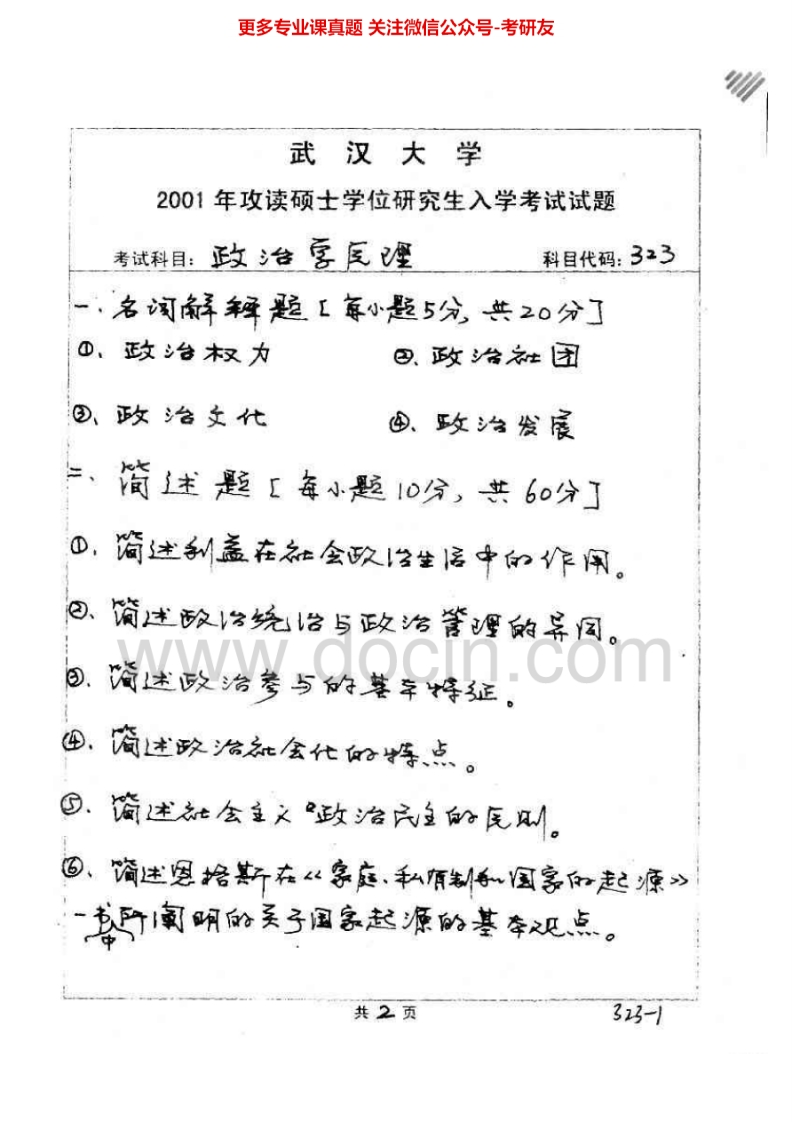 更多专业课真题 关注微信公众号-考研友
武汉大学
2001年攻读硕士学位研究生入学考试试题
考试科目：政治学原理 科目代码：323
一、名词解释题[每小题5分，共20分]
①、政治权力 ②、政治社团
③、政治文化 ④、政治发展
二、简述题[每小题10分，共60分]
①、简述利益在社会政治生活中的作用。
②、简述政治统治与政治管理的异同。
www.docin.com
③、简述政治参与的基本特征。
④、简述政治社会化的特点。
⑤、简述社会主义政治民主的原则。
⑥、简述恩格斯在《家庭、私有制和国家的起源》
一书中所阐明的关于国家起源的基本观点。
共2页 323-1